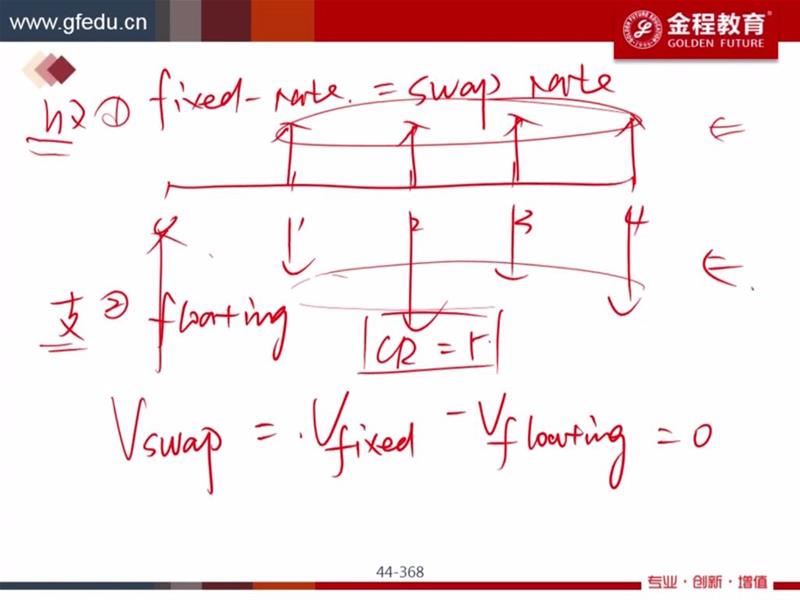 www.gfedu.cn
金程教育
GOLDEN FUTURE
收 ① fixed-rate = swap rate
1 2 3 4
支 ② floating
CR = r
Vswap = Vfixed - Vfloating = 0
44-368
专业·创新·增值